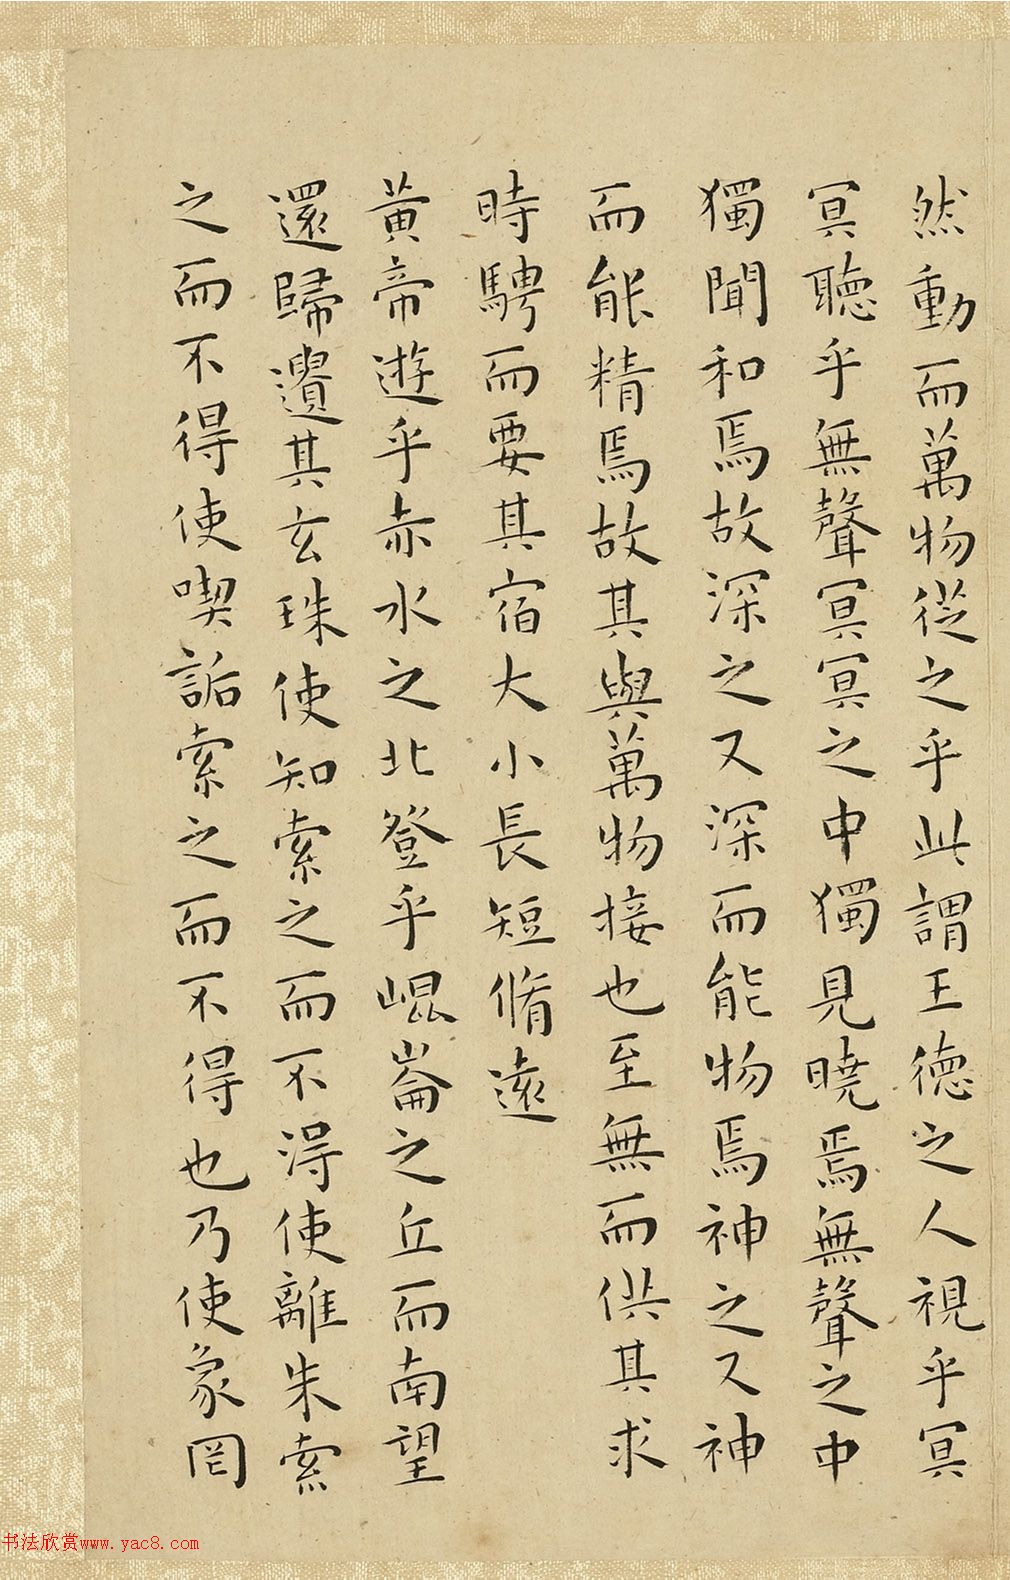 然動而萬物從之乎此謂王德之人視乎冥
冥聽乎無聲冥冥之中獨見曉焉無聲之中
獨聞和焉故深之又深而能物焉神之又神
而能精焉故其與萬物接也至無而供其求
時騁而要其宿大小長短脩遠
黃帝遊乎赤水之北登乎崐崙之丘而南望
還歸遺其玄珠使知索之而不得使離朱索
之而不得使喫詬索之而不得也乃使象罔
书法欣赏www.yac8.com